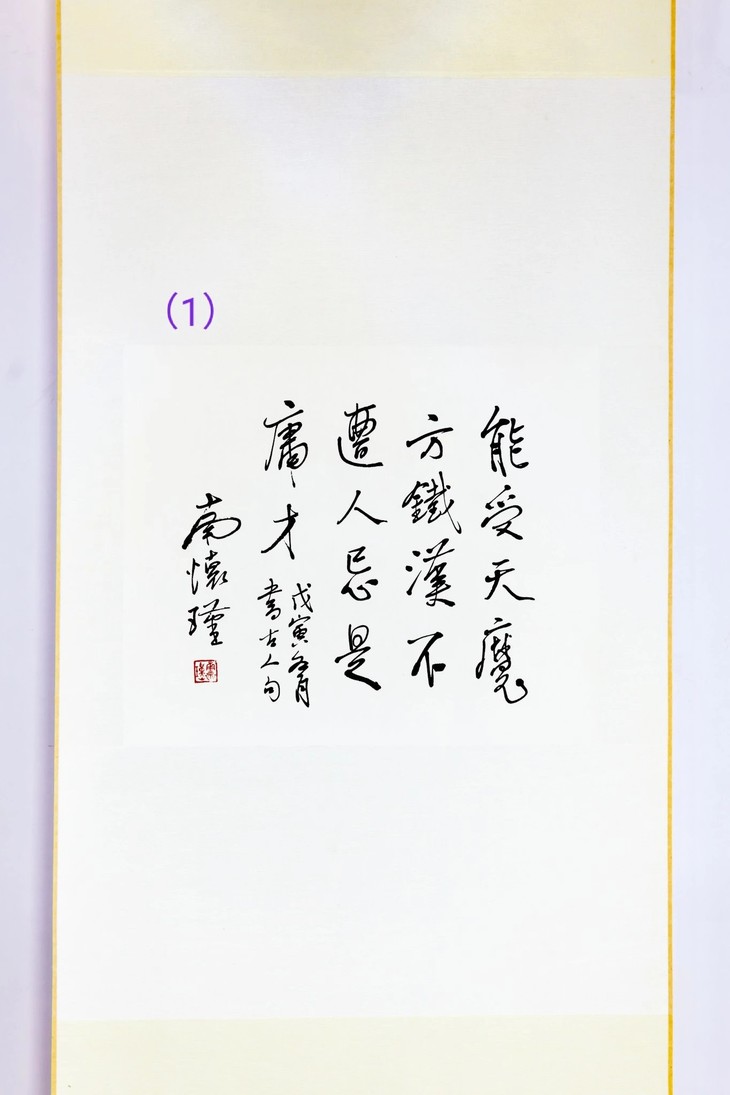 (1)
能受天魔
方鐵漢不
遭人忌是
庸才
戊寅冬月
書古人句
南懷瑾